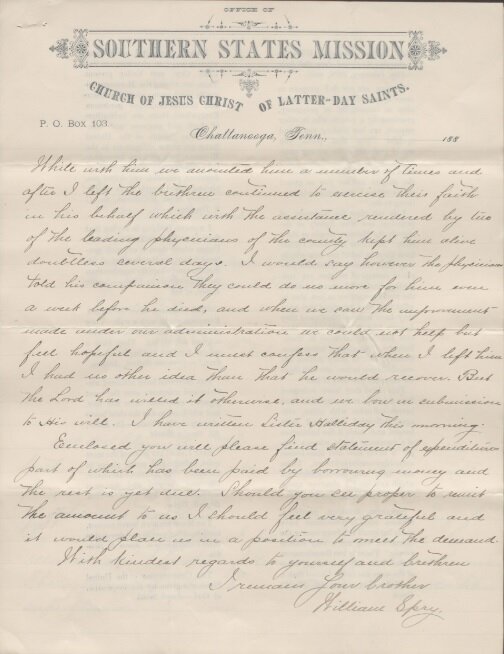 OFFICE OF
SOUTHERN STATES MISSION
CHURCH OF JESUS CHRIST OF LATTER-DAY SAINTS.
P. O. Box 103.
Chattanooga, Tenn., 188
While with him we anointed him a number of times and
after I left the brethren continued to exercise their faith
in his behalf which with the assistance rendered by two
of the leading physicians of the county kept him alive
doubtless several days. I would say however the physicians
told his companion they could do no more for him even
a week before he died, and when we saw the improvement
made under our administration we could not help but
feel hopeful and I must confess that when I left him
I had no other idea than that he would recover. But
the Lord has willed it otherwise, and we bow in submission
to His will. I have written Sister Halliday this morning.
Enclosed you will please find statement of expenditures
part of which has been paid by borrowing money and
the rest is yet due. Should you see proper to remit
the amount to us I should feel very grateful and
it would place us in a position to meet the demand.
With kindest regards to yourself and brethren
I remain Your brother
William Spry.